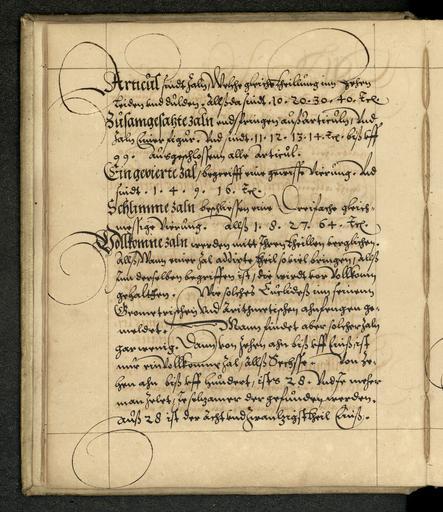 Articul sindt Zaln, Welche gleiche theillung inn zehen
leiden und dulden. Allß da sindt. 10. 20. 30. 40. etc.
Zusamgesatzte zaln entspringen auß articuln, und
zaln einer figur. Und sindt. 11. 12. 13. 14. etc. biß uff
99. außgeschlossen alle articul.
Ein gevierte zal, begreifft eine gewisse vierung. Und
sindt. 1. 4. 9. 16. etc.
Schlimme zaln beschliessen eine dreifache gleich-
messige vierung. allß 1. 8. 27. 64. etc.
Volkomne zaln werden mitt Ihren theillen verglichen.
Allß Wann einer zal addirte theil soviel bringen, allß
Inn derselben begriffen ist, die wirdt vor vollkomn
gehaltten. Wie solches Euclides inn seinem
Geometrischen und Arithmetischen anfengen ge-
meldet. Mann findet aber solcher zaln
gar wenig. Dann von zehen ahn biß uff Eins ist
nur ein Vollkomne zal, allß Sechße. Von ze-
hen ahn biß uff hundert, ists 28. Und Je meher
man zelet, Je selzamer der gefunden werden.
Auß 28 ist der acht und zwantzigst theil Eins.